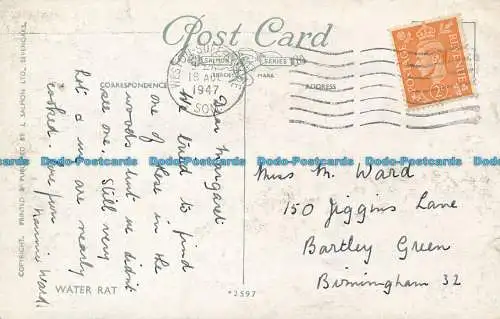 Post Card
SALMON SERIES
TRADE MARK
CORRESPONDENCE
ADDRESS
WESTON-SUPER-MARE
18 AUG
1947
SOM
POSTAGE REVENUE
2D
Dear Margaret
We tried to find
one of these in the
woods but we didn't
see one. Still very
hot & we are nearly
cooked. Love from
Maurice Ward.
Miss M. Ward
150 Jiggins Lane
Bartley Green
Birmingham 32
COPYRIGHT. PRINTED & PUBLISHED BY J. SALMON LTD., SEVENOAKS.
WATER RAT
*2597
Postcards